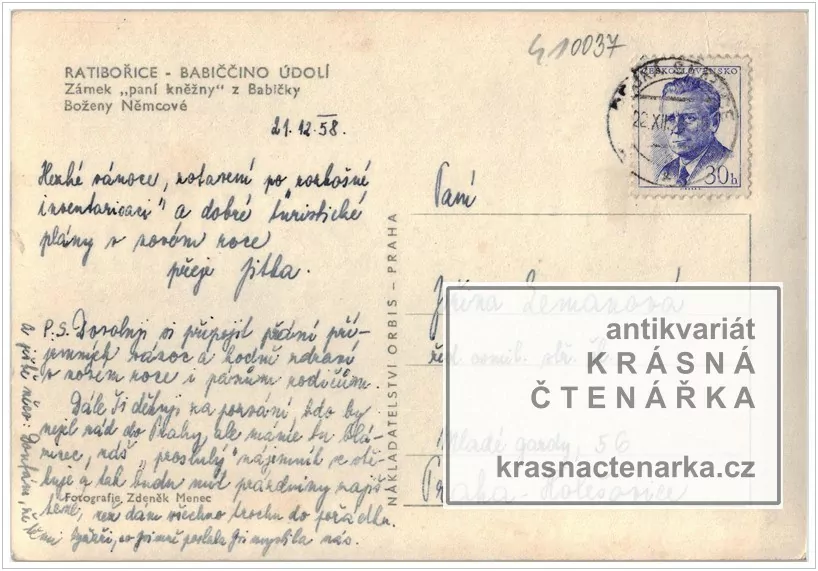 G10037
RATIBOŘICE - BABIČČINO ÚDOLÍ
Zámek „paní kněžny" z Babičky
Boženy Němcové
ČESKOSLOVENSKO
22.XII.
30h
21.12.58.
Hezké vánoce, zotavení po rozkošné
inventarisaci" a dobré turistické
plány v novém roce
přeje Jitka.
P.S. Dovoluji si připojit přání pří-
jemných vánoc a hodně zdraví
v novém roce i pánům rodičům.
Dále Ti děkuji za pozvání, kdo by
nejel rád do Prahy, ale máme tu
náš "proslulý" nájemník se
a tak budu mít prázdniny
než dám všechno trochu do pořádku.
A ještě něco: Doufám, že
NAKLADATELSTVÍ ORBIS - PRAHA
Fotografie Zdeněk Menec
Paní
Jiřina Zemanová
Mladé gardy, 56
Praha - Holešovice
antikvariát
KRÁSNÁ
ČTENÁŘKA
krasnactenarka.cz